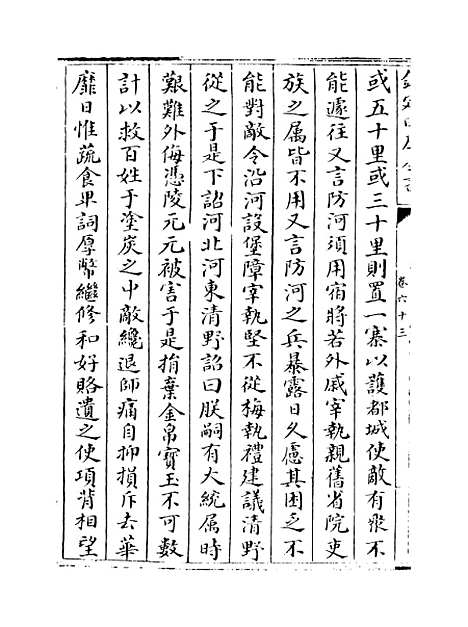 欽定四庫全書
卷六十三
或五十里或三十里則置一寨以護都城使敵有衆不
能遽往又言防河須用宿將若外戚宰執親舊省院吏
族之属皆不用又言防河之兵暴露日久慮其困乏不
能對敵令沿河設堡障宰執堅不從梅執禮建議清野
從之于是下詔河北河東清野詔曰朕嗣有大統属時
艱難外侮憑陵元元被害于是捐棄金帛寶玉不可數
計以救百姓于塗炭之中敵纔退師痛自抑損斥去華
靡日惟蔬食卑詞厚幣繼修和好賂遺之使項背相望